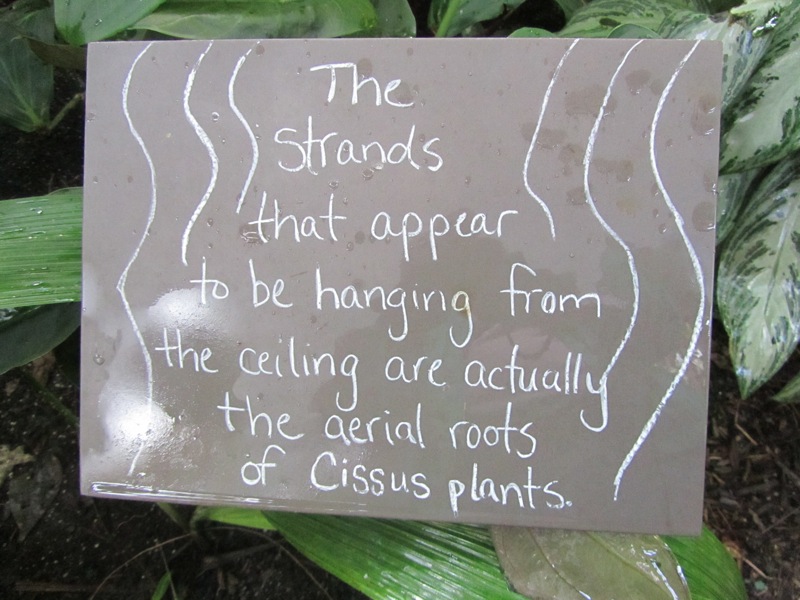 The
Strands
that appear
to be hanging from
the ceiling are actually
the aerial roots
of Cissus plants.